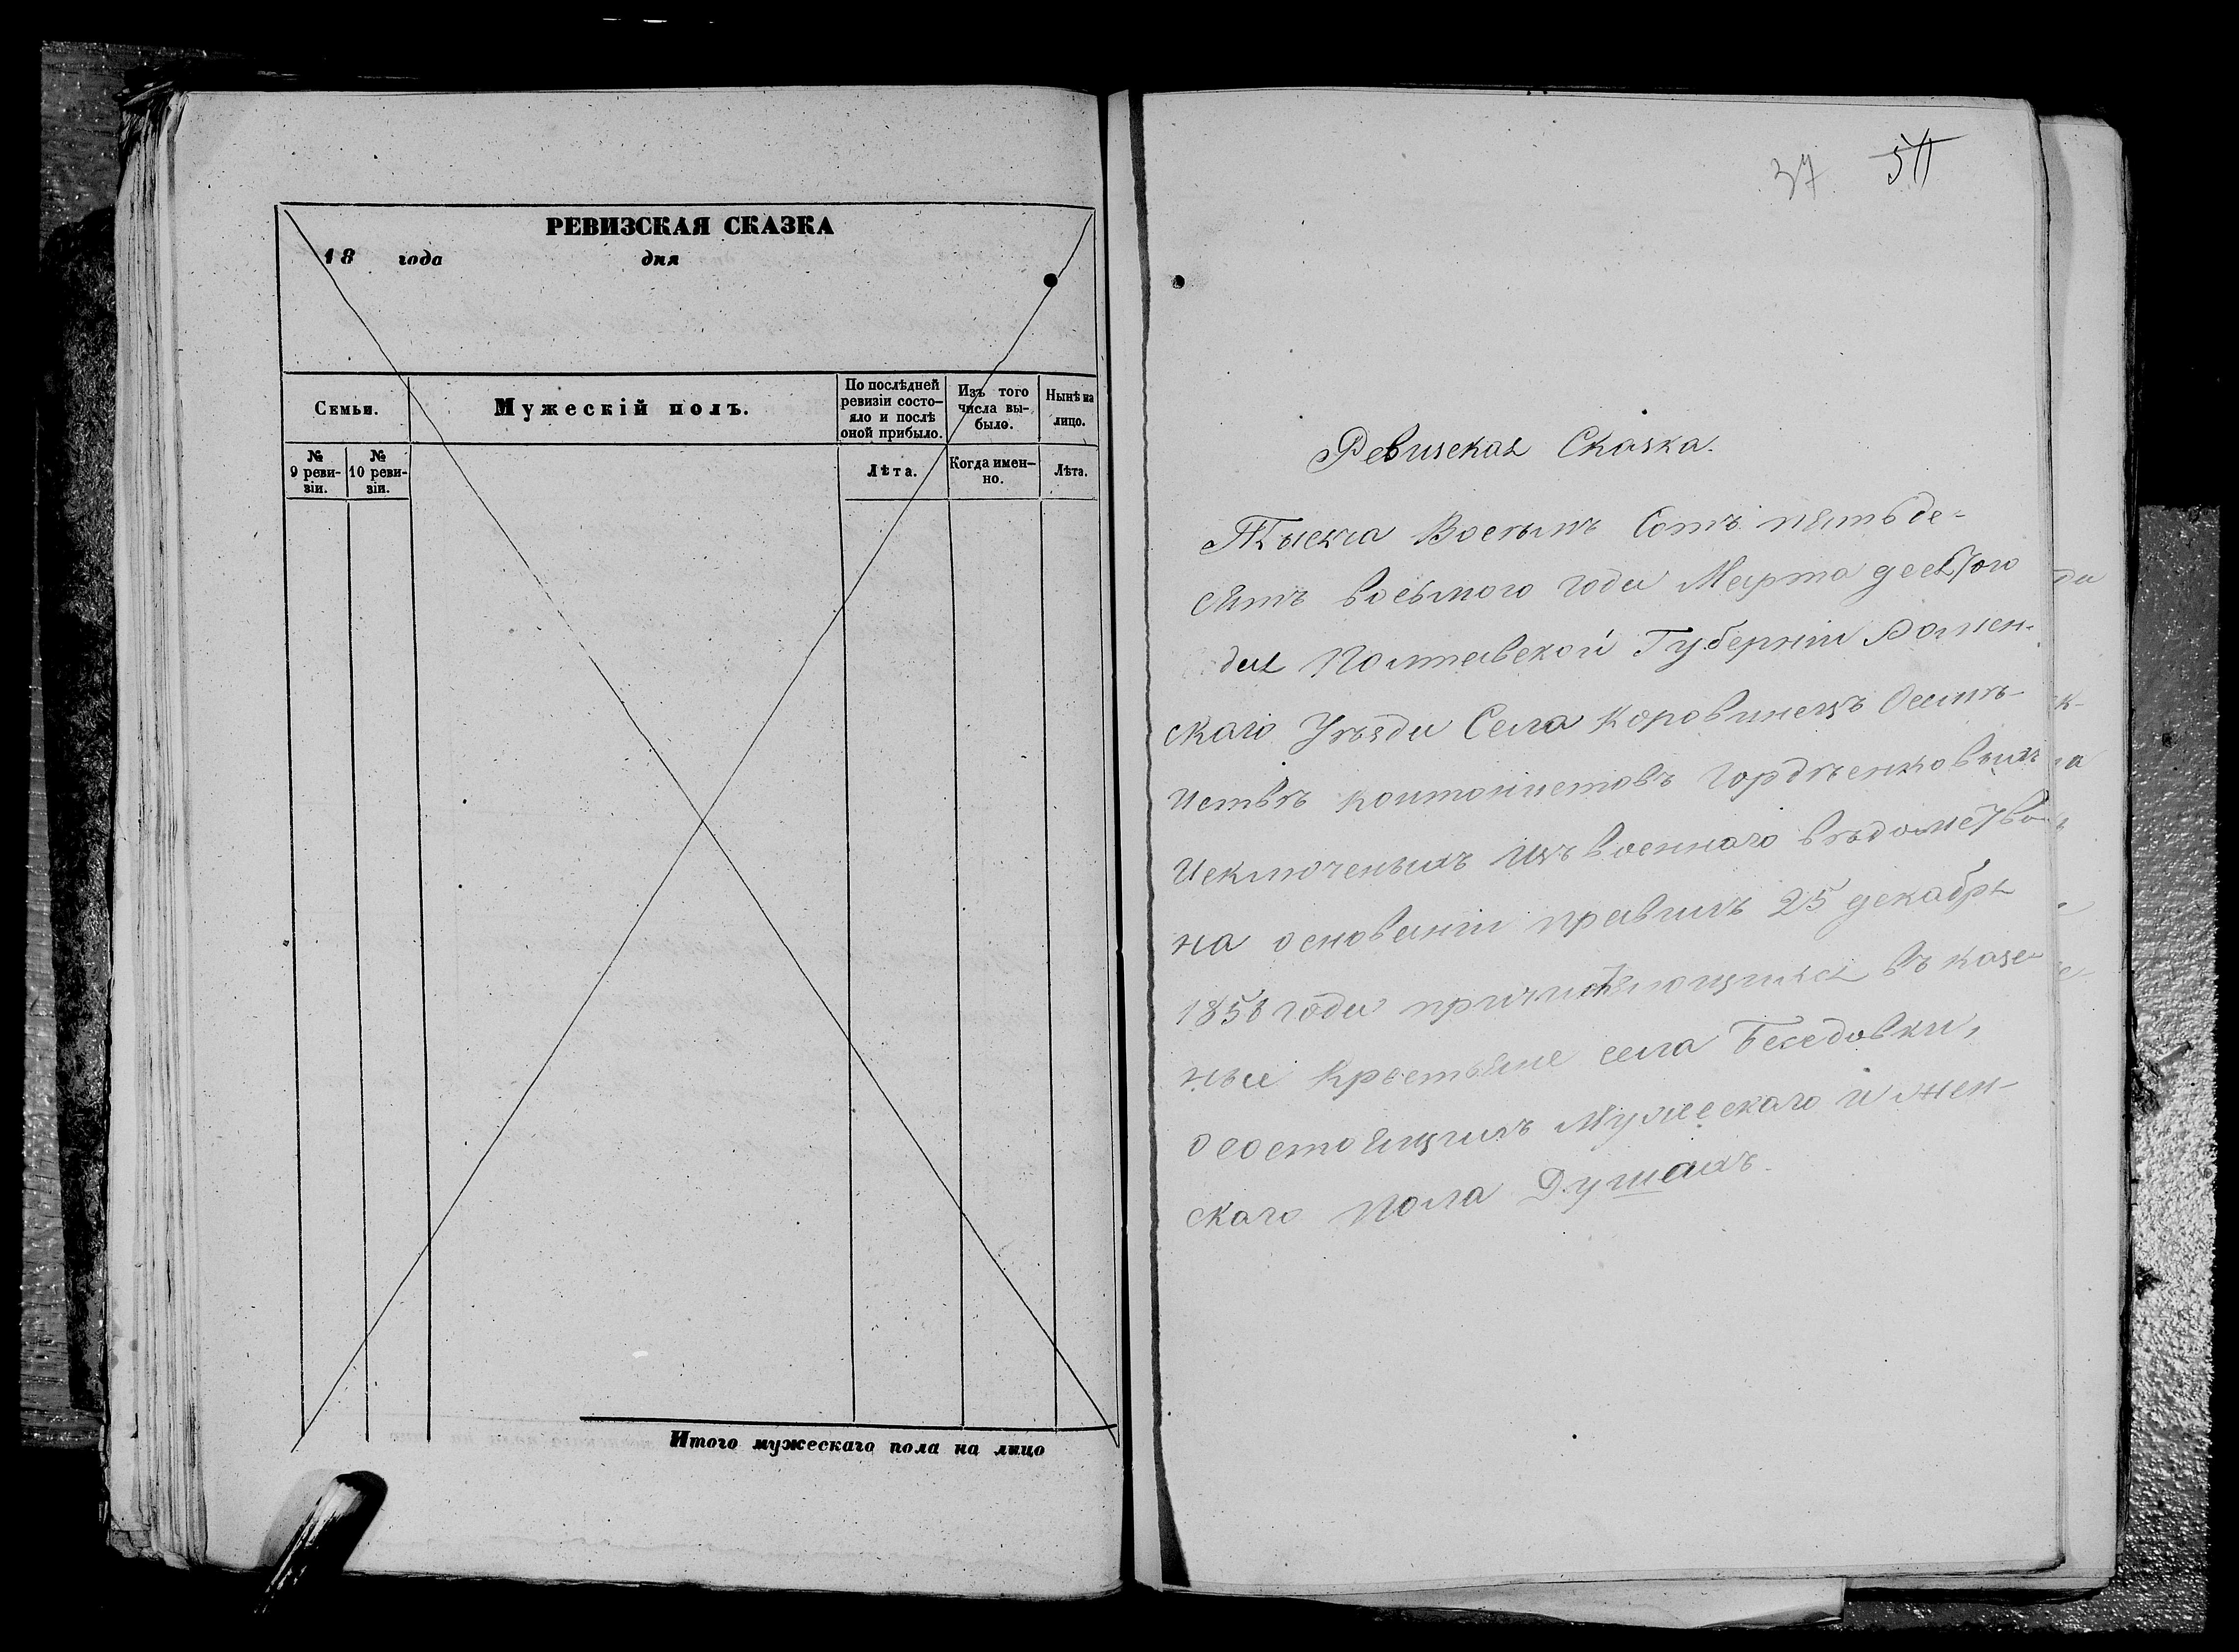 РЕВИЗСКАЯ СКАЗКА
18 года дня
Семьи.
Мужескій полъ.
По послѣдней
ревизіи состо-
яло и послѣ
оной прибыло.
Изъ того
числа вы-
было.
Нынѣ на
лицо.
№
9 реви-
зіи.
№
10 реви-
зіи.
Лѣта.
Когда имен-
но.
Лѣта.
Итого мужескаго пола на лицо
37
Ревизская Сказка.
Тысяча Восемь Сотъ пятьде-
сятъ восьмого года Марта
дня Полтавской Губерніи Ромен-
скаго Уѣзда Села Коровинецъ
кантонистовъ Гордѣенковыхъ
Исключеныхъ Изъ военнаго вѣдомства
на основаніи правилъ 25 декабря
года въ казе
ные Крестьяне села Беседовки,
о состоящихъ Мужескаго и жен-
скаго пола Душахъ.